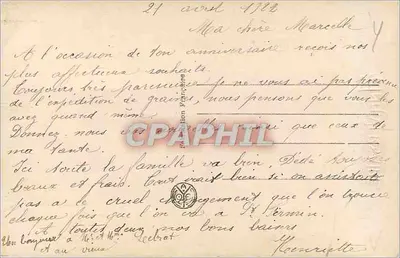 21 avril 1922
Ma chère Marcelle
A l'occasion de ton anniversaire reçois nos
plus affectueux souhaits.
Toujours très paresseuse je ne vous ai pas prévenu
de l'expédition de graines, nous pensons que vous les
avez quand même
Donnez nous de
que ceux de
ma tante.
Ici toute la famille va bien, Dédé
beaux et frais. Tout irait bien si on
pas à ce cruel changement que l'on trouve
chaque fois que l'on va à St Firmin.
A toutes deux nos bons baisers
Henriette
Un bonjour à Mr et Mme
et au vieux
CPAPHIL
.com